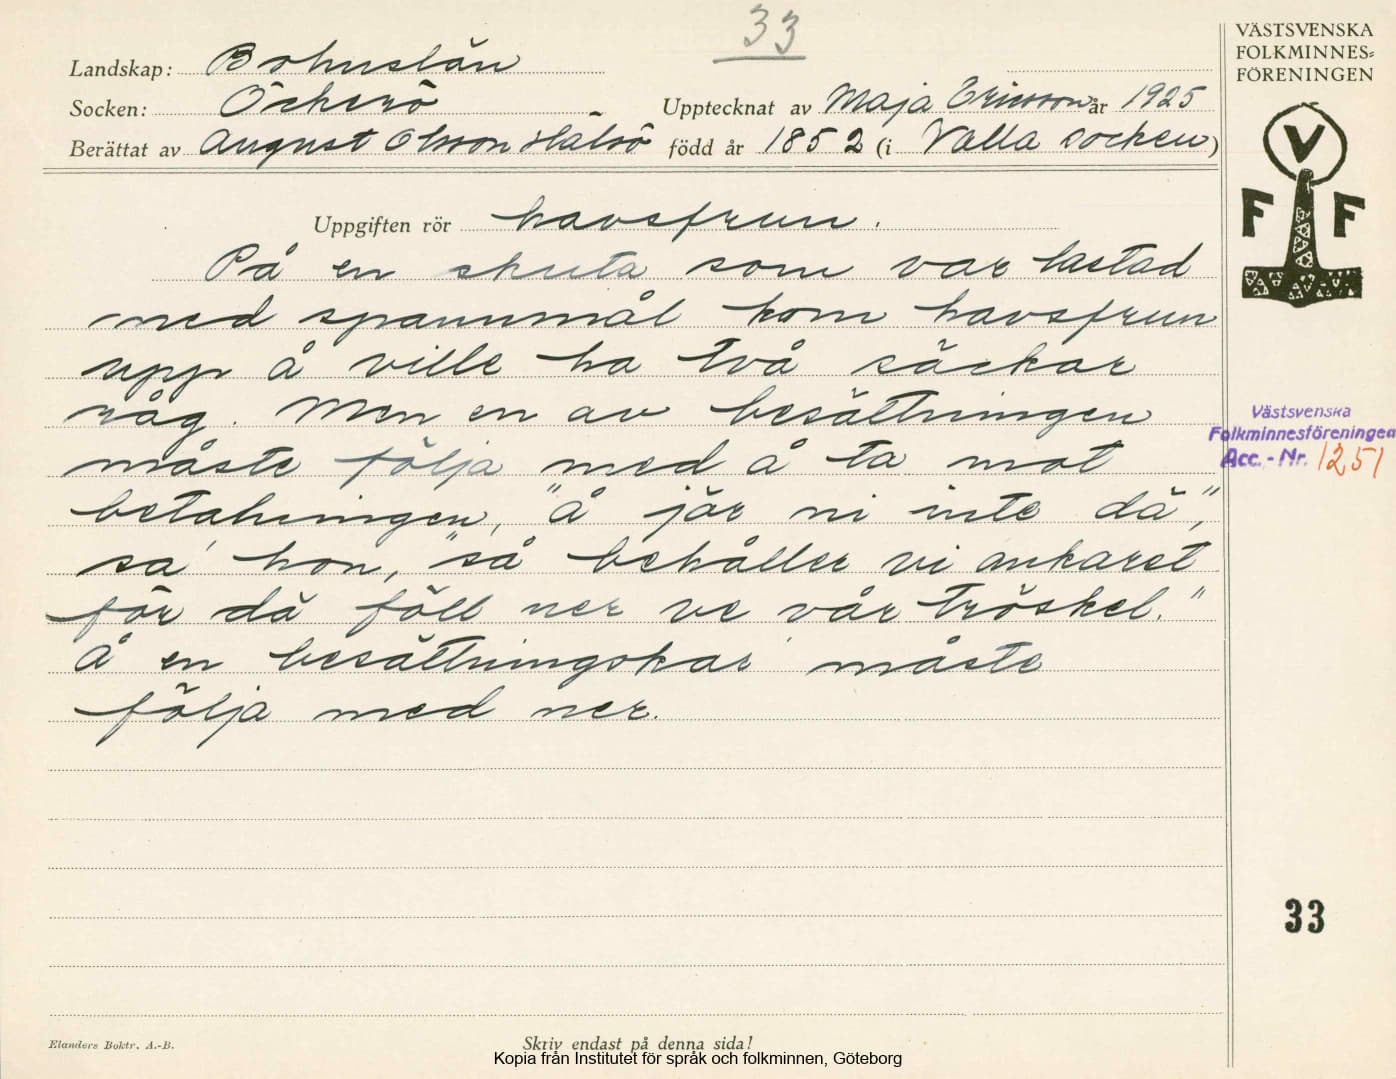 33
VÄSTSVENSKA
FOLKMINNES=
FÖRENINGEN
V
F F
Landskap: Bohuslän
Socken: Öckerö Upptecknat av Maja Ericsson år 1925
Berättat av August Olsson Hälsö född år 1852 (i Valla socken)
Uppgiften rör havsfrun.
På en skuta som var lastad
med spannmål kom havsfrun
upp å ville ha två säckar
råg. Men en av besättningen
måste följa med å ta mot
betalningen, "å jör ni inte dä",
sa' hon, "så behåller vi ankaret
för dä föll ner ve vår tröskel."
Å en besättningskar måste
följa med ner.
Västsvenska
Folkminnesföreningen
Acc.-Nr. 1251
33
Elanders Boktr. A.-B.
Skriv endast på denna sida!
Kopia från Institutet för språk och folkminnen, Göteborg